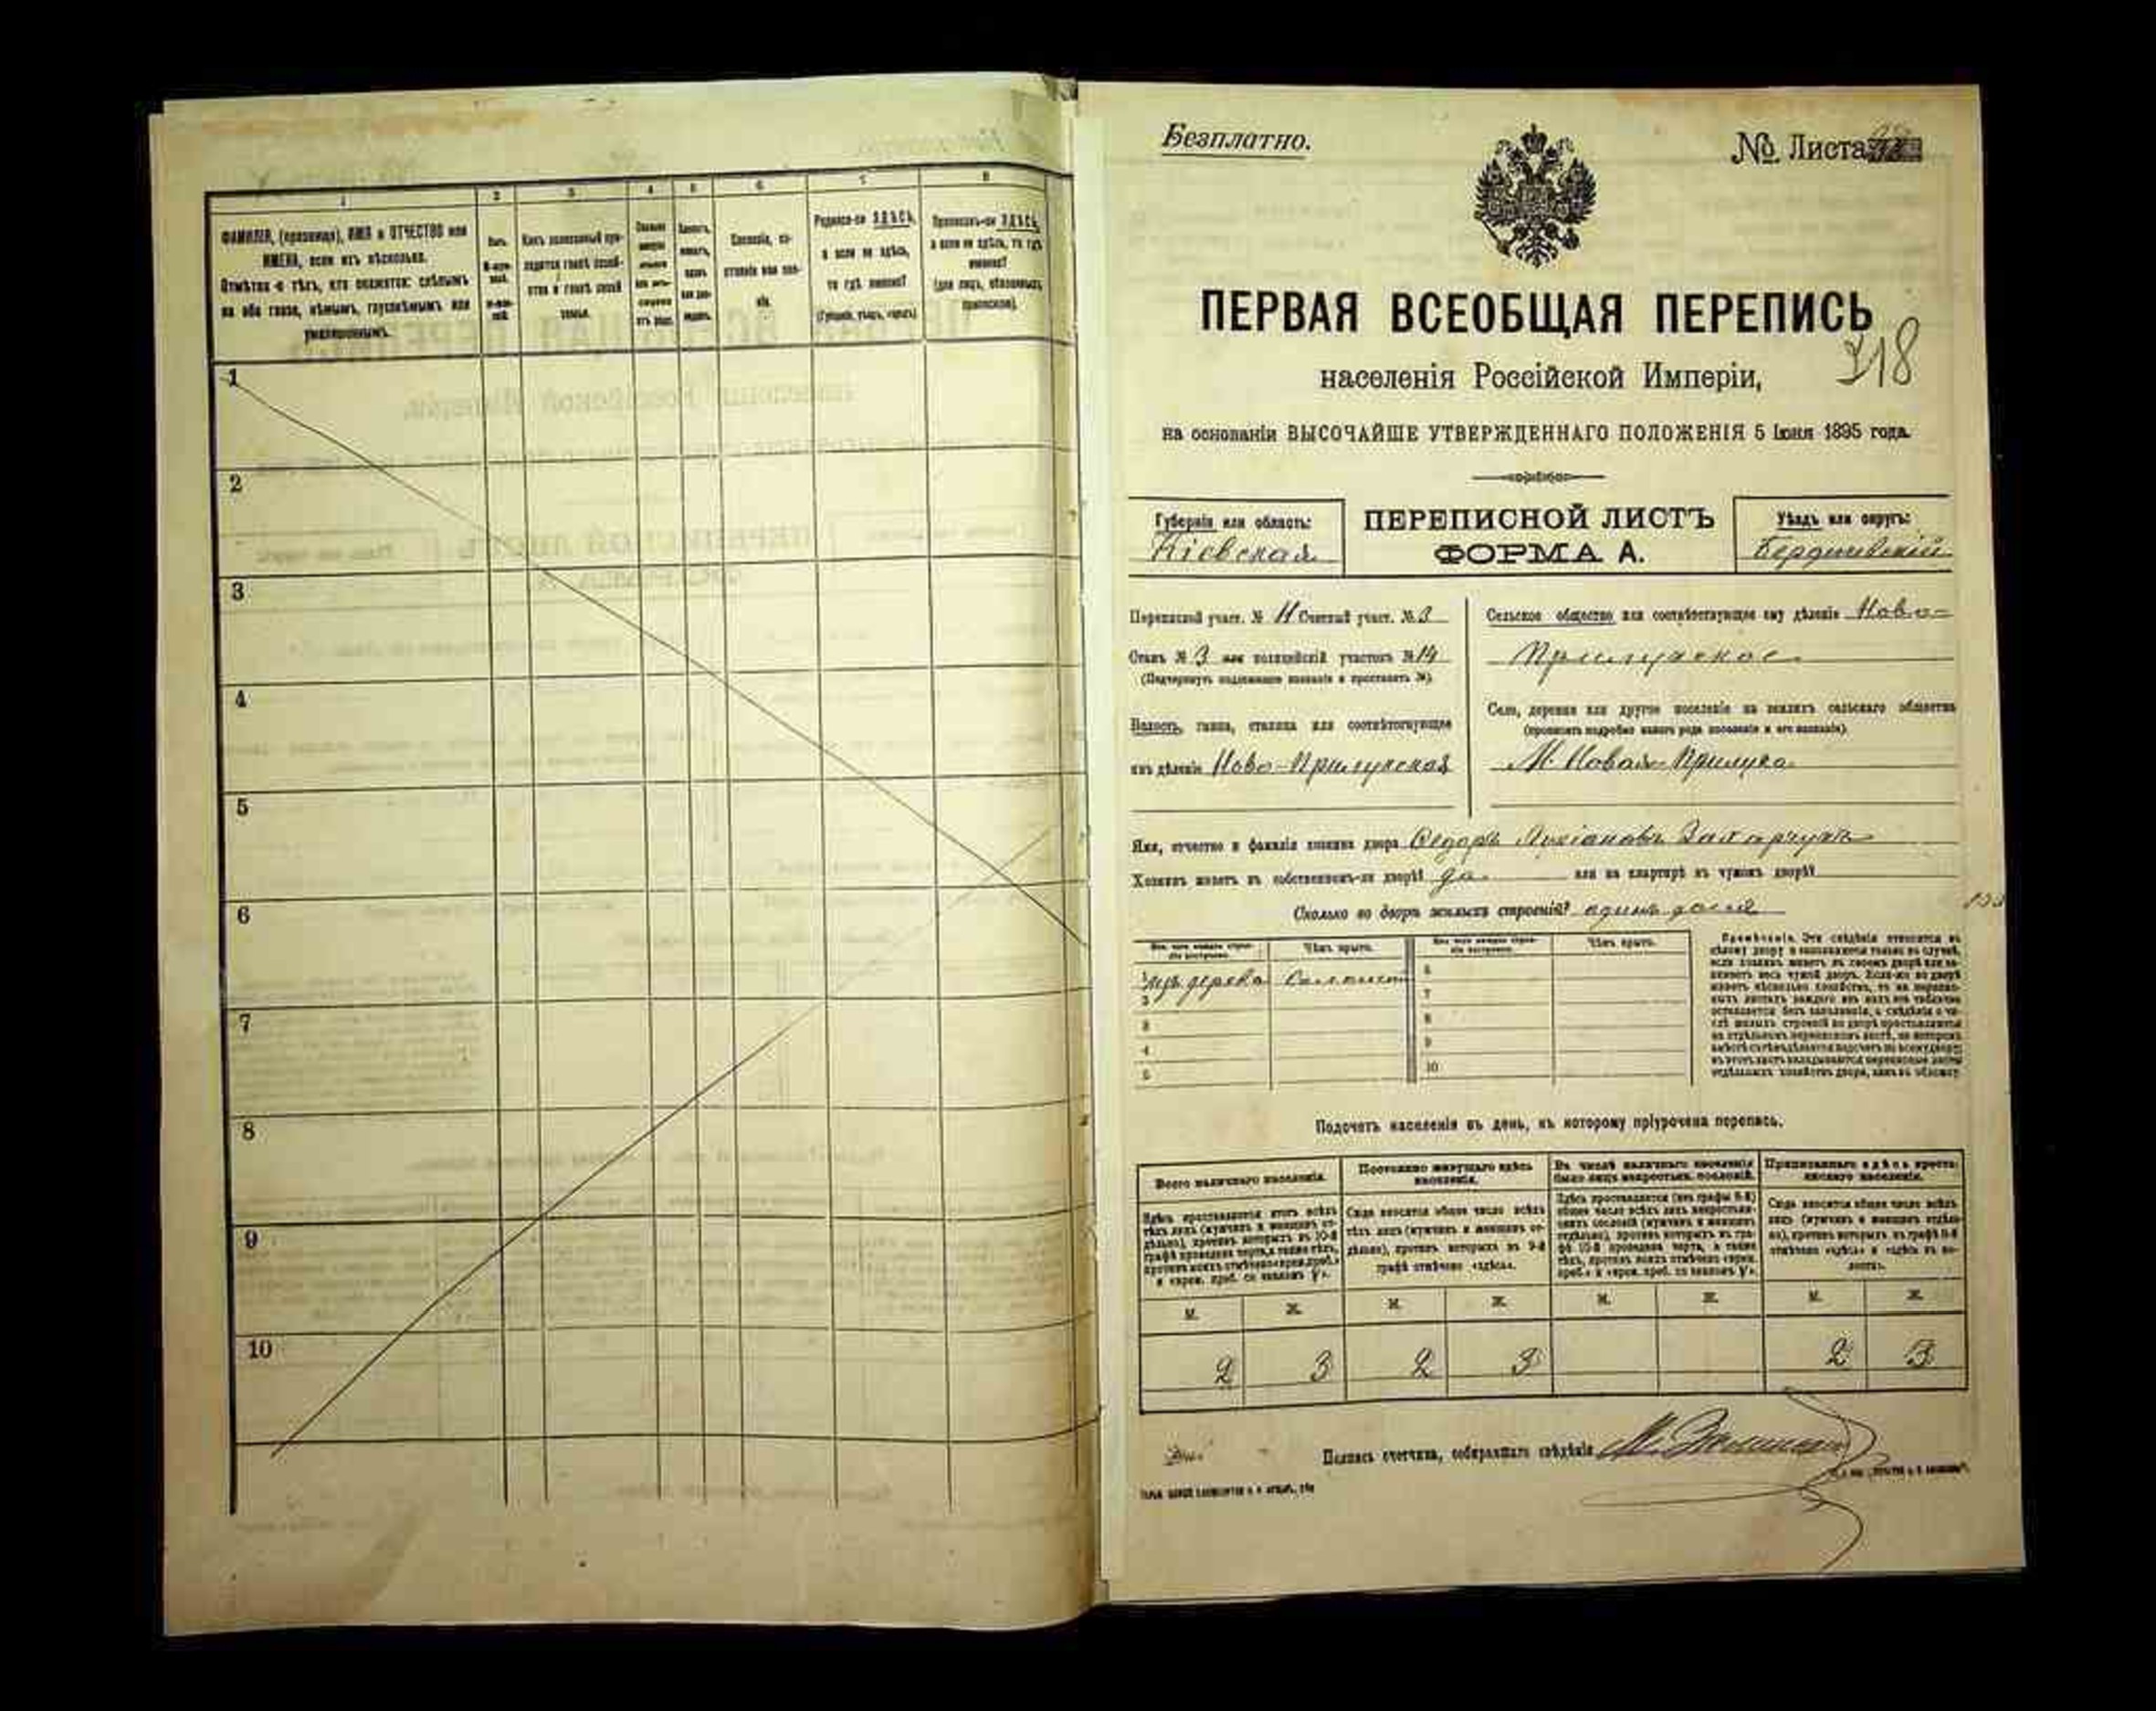 1 2 3 4 5 6 7 8
ФАМИЛІЯ, (прозвище), ИМЯ и ОТЧЕСТВО или
ИМЕНА, если ихъ нѣсколько.
Отмѣтка о тѣхъ, кто окажется: слѣпымъ
на оба глаза, нѣмымъ, глухонѣмымъ или
умалишеннымъ.
Какъ записанный при-
ходится главѣ хозяй-
ства и главѣ своей
семьи.
Сословіе, со-
стояніе или зва-
ніе.
Родился-ли ЗДѢСЬ,
а если не здѣсь,
то гдѣ именно?
(Губернія, уѣздъ, городъ)
Приписанъ-ли ЗДѢСЬ,
а если не здѣсь, то гдѣ
именно?
(для лицъ, обязанныхъ
припискою).
1
2
3
4
5
6
7
8
9
10
Безплатно.
№ Листа
ПЕРВАЯ ВСЕОБЩАЯ ПЕРЕПИСЬ
318
населенія Россійской Имперіи,
на основаніи ВЫСОЧАЙШЕ УТВЕРЖДЕННАГО ПОЛОЖЕНІЯ 5 Іюня 1895 года.
Губернія или область:
Кіевская
ПЕРЕПИСНОЙ ЛИСТЪ
ФОРМА А.
Уѣздъ или округъ:
Бердичевскій
Переписной участ. № 11 Счетный участ. № 3
Станъ № 3 или полицейскій участокъ № 14
(Подчеркнуть надлежащее названіе и проставить №)
Волость, гмина, станица или соотвѣтствующее
имъ дѣленіе Ново-Прилукская
Сельское общество или соотвѣтствующее ему дѣленіе Ново-
Прилукское
Село, деревня или другое поселеніе на земляхъ сельскаго общества
(прописать подробно какого рода поселеніе и его названіе)
М. Новая-Прилука
Имя, отчество и фамилія хозяина двора Федоръ Лукіановъ
Хозяинъ живетъ въ собственномъ-ли дворѣ? да или на квартирѣ въ чужомъ дворѣ?
Сколько во дворѣ жилыхъ строеній? одинъ домъ
Изъ чего каждое строе-
ніе построено.
Чѣмъ крыто.
Изъ чего каждое строе-
ніе построено.
Чѣмъ крыто.
1 изъ дерева Соломой
3
4
5
6
7
8
9
10
Примѣчаніе. Эти свѣдѣнія относятся къ
цѣлому двору и заполняются только въ случаѣ,
если хозяинъ живетъ въ своемъ дворѣ или за-
нимаетъ весь чужой дворъ. Если-же во дворѣ
живетъ нѣсколько хозяйствъ, то на перепис-
ныхъ листахъ каждаго изъ нихъ эта табличка
остается безъ заполненія, а свѣдѣнія о чи-
слѣ жилыхъ строеній во дворѣ проставляются
на отдѣльномъ переписномъ листѣ, на которомъ
Подсчетъ населенія въ день, къ которому пріурочена перепись.
Всего наличнаго населенія.
Постоянно живущаго здѣсь
населенія.
Въ числѣ наличнаго населенія
было лицъ некрестьян. сословій.
Приписаннаго здѣсь кресть-
янскаго населенія.
Здѣсь проставляется итогъ всѣхъ
тѣхъ лицъ (мужчинъ и женщинъ от-
дѣльно), противъ которыхъ въ 10-й
графѣ проведена черта, а также тѣхъ,
противъ коихъ отмѣчено «врем. преб.»
Сюда вносится общее число всѣхъ
тѣхъ лицъ (мужчинъ и женщинъ от-
дѣльно), противъ которыхъ въ 9-й
графѣ отмѣчено «здѣсь».
Здѣсь проставляется (изъ графы 6-й)
общее число всѣхъ лицъ некрестьян-
скихъ сословій (мужчинъ и женщинъ
отдѣльно), противъ которыхъ въ гра-
фѣ 10-й проведена черта, а также
тѣхъ, противъ коихъ отмѣчено «врем.
Сюда вносится общее число всѣхъ
лицъ (мужчинъ и женщинъ отдѣль-
но), противъ которыхъ въ графѣ 8-й
отмѣчено «здѣсь» и «здѣсь въ во-
лости».
М. Ж. М. Ж. М. Ж. М. Ж.
2 3 2 3 2 3
Подпись счетчика, собиравшаго свѣдѣнія